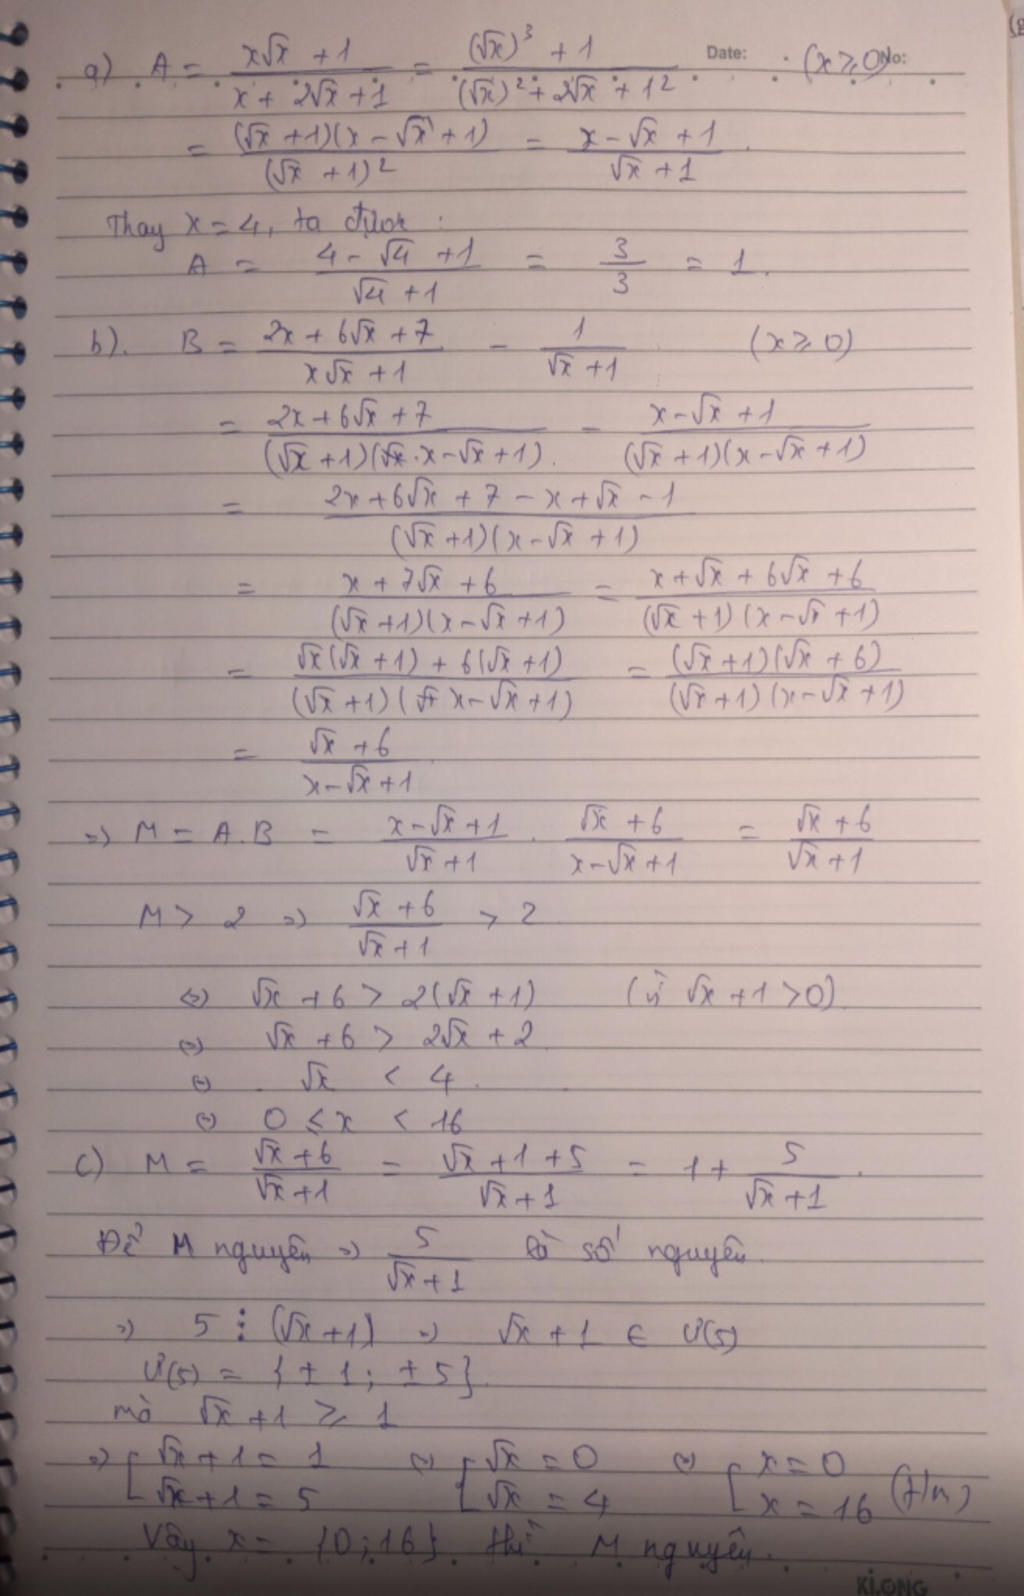 Date: No:
a) A = (x√x + 1)/(x + 2√x + 1) = ((√x)³ + 1)/((√x)² + 2√x + 1²) (x ≥ 0)
= ((√x + 1)(x - √x + 1))/((√x + 1)²) = (x - √x + 1)/(√x + 1)
Thay x = 4, ta được :
A = (4 - √4 + 1)/(√4 + 1) = 3/3 = 1.
b). B = (2x + 6√x + 7)/(x√x + 1) - 1/(√x + 1) (x ≥ 0)
= (2x + 6√x + 7)/((√x + 1)(x - √x + 1)) - (x - √x + 1)/((√x + 1)(x - √x + 1))
= (2x + 6√x + 7 - x + √x - 1)/((√x + 1)(x - √x + 1))
= (x + 7√x + 6)/((√x + 1)(x - √x + 1)) = (x + √x + 6√x + 6)/((√x + 1)(x - √x + 1))
= (√x(√x + 1) + 6(√x + 1))/((√x + 1)(x - √x + 1)) = ((√x + 1)(√x + 6))/((√x + 1)(x - √x + 1))
= (√x + 6)/(x - √x + 1)
=> M = A.B = (x - √x + 1)/(√x + 1) . (√x + 6)/(x - √x + 1) = (√x + 6)/(√x + 1)
M > 2 => (√x + 6)/(√x + 1) > 2
<=> √x + 6 > 2(√x + 1) (vì √x + 1 > 0)
<=> √x + 6 > 2√x + 2
<=> √x < 4.
<=> 0 ≤ x < 16
c) M = (√x + 6)/(√x + 1) = (√x + 1 + 5)/(√x + 1) = 1 + 5/(√x + 1).
Để M nguyên => 5/(√x + 1) là số nguyên
=> 5 ⋮ (√x + 1) => √x + 1 ∈ Ư(5)
Ư(5) = {± 1; ± 5}
mà √x + 1 ≥ 1
=> [ √x + 1 = 1 <=> [ √x = 0 <=> [ x = 0
√x + 1 = 5 √x = 4 x = 16 (t/m)
Vậy x = {0; 16} thì M nguyên.
KLONG